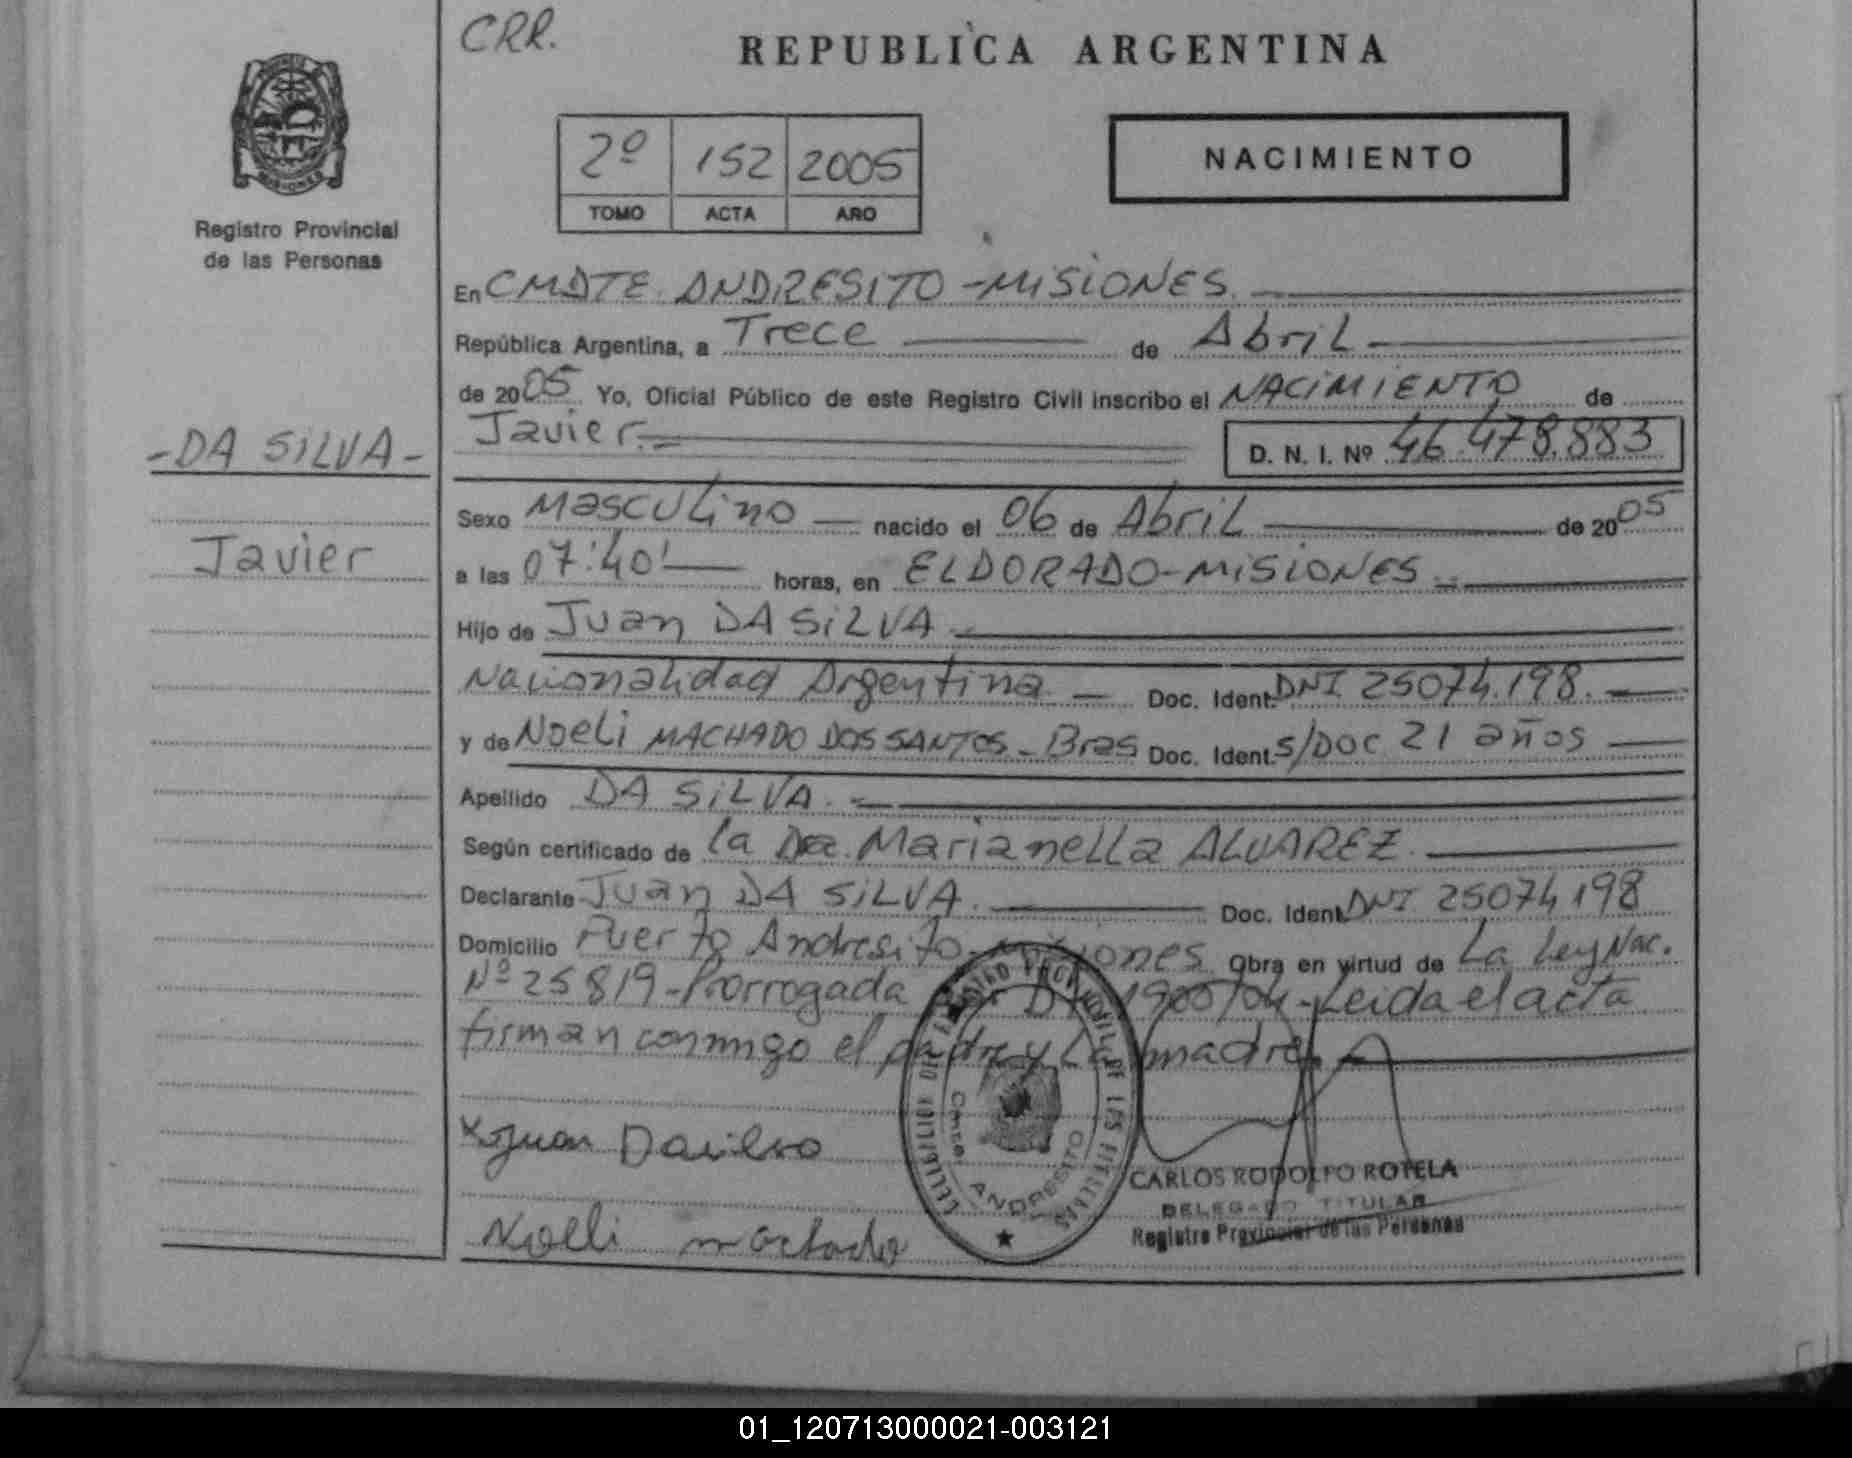 CRR.
REPUBLICA ARGENTINA
MISIONES
Registro Provincial
de las Personas
2º 152 2005
TOMO ACTA AÑO
NACIMIENTO
En CMDTE. ANDRESITO - MISIONES.
República Argentina, a Trece de Abril
de 2005 Yo, Oficial Público de este Registro Civil inscribo el NACIMIENTO de
Javier.
D. N. I. Nº 46.478.883
- DA SILVA -
Javier
Sexo Masculino nacido el 06 de Abril de 2005
a las 07:40' horas, en ELDORADO - MISIONES.
Hijo de Juan DA SILVA.
Nacionalidad Argentina. Doc. Ident. DNI 25074.198.
y de Noeli MACHADO DOS SANTOS - Bras Doc. Ident. S/DOC 21 años
Apellido DA SILVA.
Según certificado de la Dra. Marianella ALVAREZ.
Declarante Juan DA SILVA. Doc. Ident. DNI 25074198
Domicilio Puerto Andresito - Misiones Obra en virtud de La Ley Nac.
Nº 25819 - Prorrogada 1900/04 - Leida el acta
firman conmigo el padre y La madre.
Juan Dasilva
Noelli machado
CMDTE. ANDRESITO
CARLOS RODOLFO ROTELA
DELEGADO TITULAR
Registro Provincial de las Personas
01_120713000021-003121